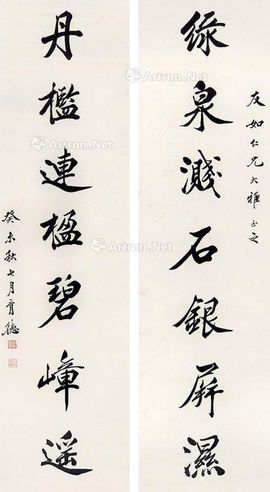 友如仁兄大雅正之
緑泉濺石銀屏濕
丹檻連楹碧嶂遥
癸未秋七月
Artron.Net